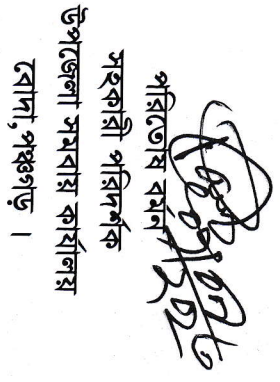 পরিতোষ বর্মন
সহকারী পরিদর্শক
উপজেলা সমবায় কার্যালয়
বোদা, পঞ্চগড় ।